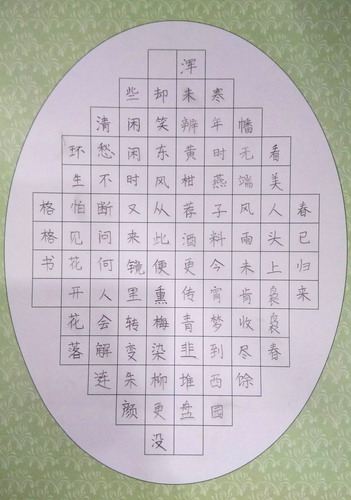 春已归来
看美人头上袅袅春
幡无端风雨未肯收尽馀
寒年时燕子料今宵梦到西园
浑未辨黄柑荐酒更传青韭堆盘
却笑东风从此便熏梅染柳更没
些闲闲时又来镜里转变朱颜
清愁不断问何人会解连
环生怕见花开花落
格格书